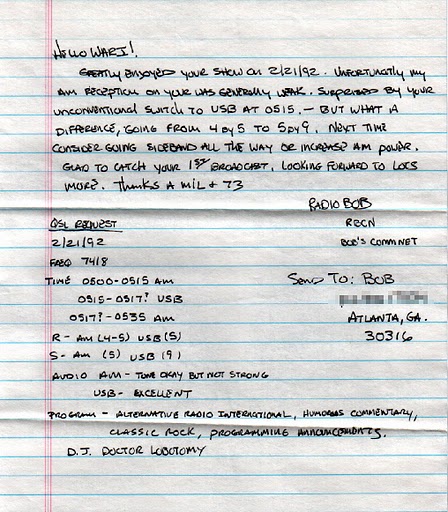 HELLO WARI!
GREATLY ENJOYED YOUR SHOW ON 2/21/92. UNFORTUNATLY MY
AM RECEPTION ON YOUR WAS GENERALLY WEAK. SURPRISED BY YOUR
UNCONVENTIONAL SWITCH TO USB AT 0515. - BUT WHAT A
DIFFERENCE, GOING FROM 4 BY 5 TO 5 BY 9. NEXT TIME
CONSIDER GOING SIDEBAND ALL THE WAY OR INCREASE AM POWER.
GLAD TO CATCH YOUR 1ST BROADCAST, LOOKING FORWARD TO LOTS
MORE. THANKS A MIL + 73
RADIO BOB
RBCN
BOB'S COMM NET
QSL REQUEST
2/21/92
FREQ 7418
TIME 0500-0515 AM
0515-0517? USB
0517?-0535 AM
R - AM (4-5) USB (5)
S - AM (5) USB (9)
AUDIO AM - TONE OKAY BUT NOT STRONG
USB - EXCELLENT
SEND TO: BOB
ATLANTA, GA.
30316
PROGRAM - ALTERNATIVE RADIO INTERNATIONAL, HUMOROUS COMMENTARY,
CLASSIC ROCK, PROGRAMMING ANNOUNCEMENTS.
D.J. DOCTOR LOBOTOMY